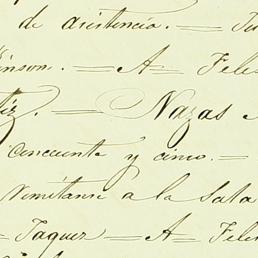 de asistencia. — Tu
inson. — A — Feles
tiz. — Nazas
cincuenta y cinco. —
remitanse a la Sala
— Taquez — A — Feles